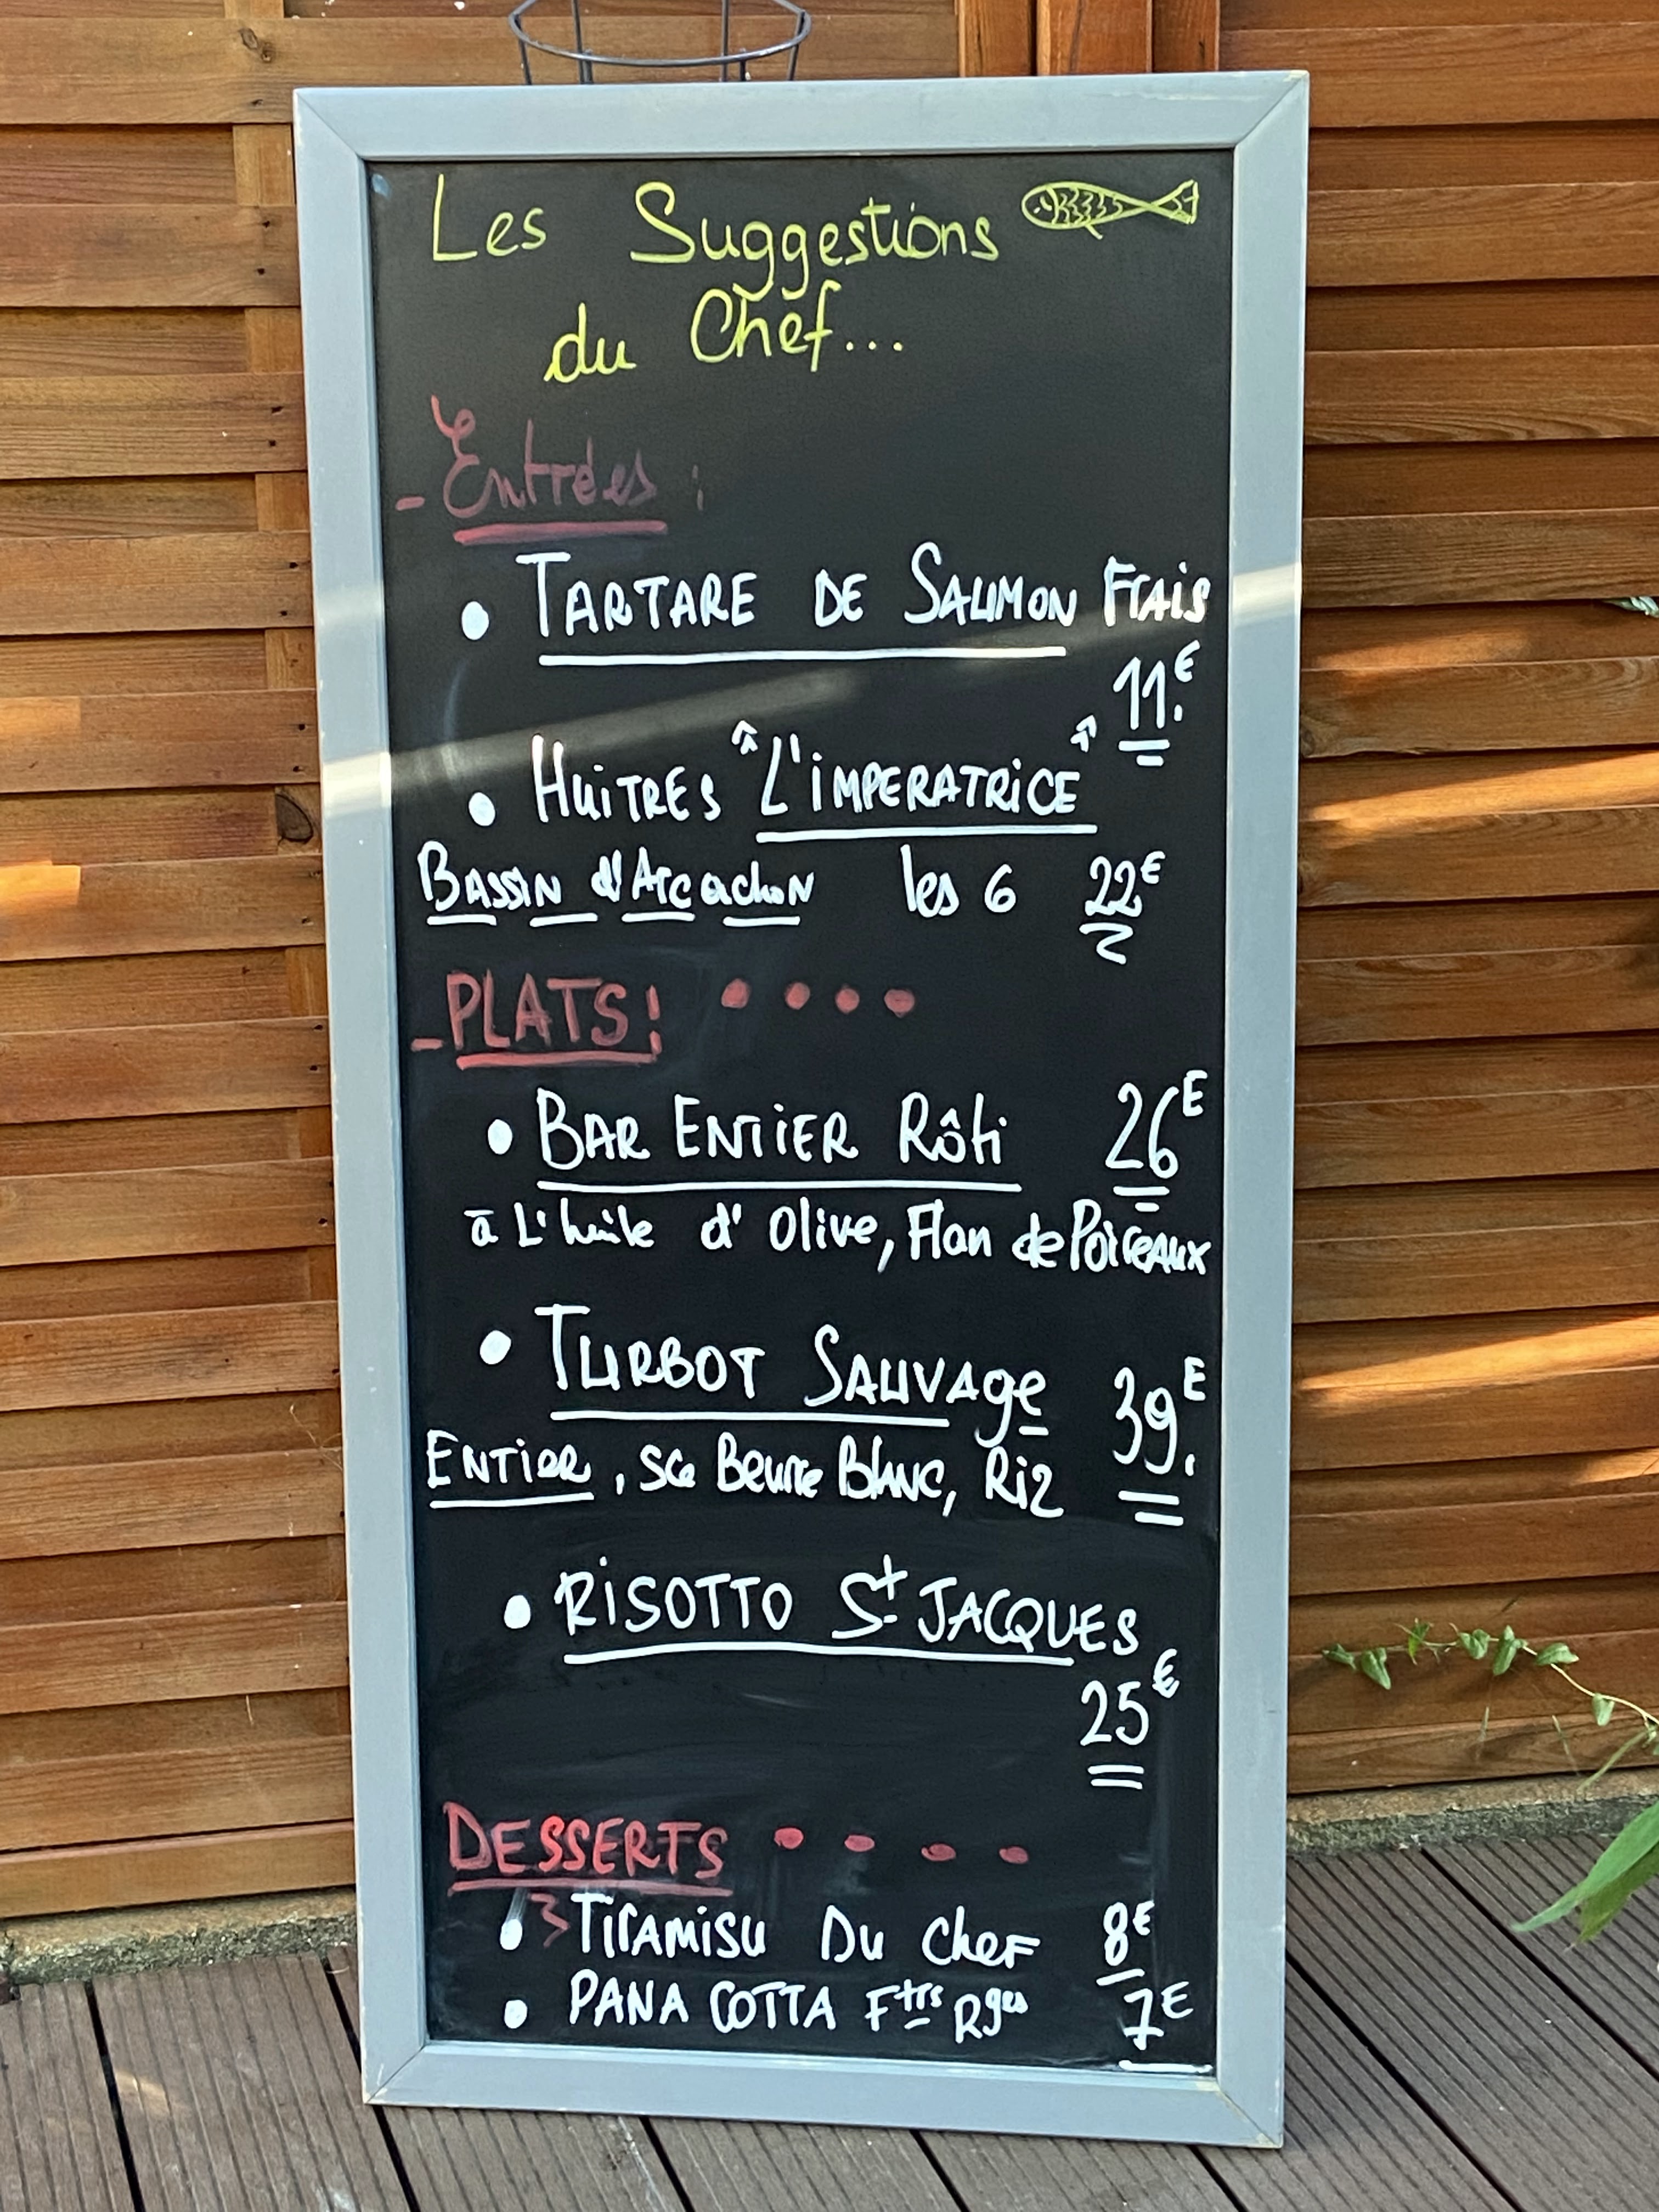 Les Suggestions
du Chef...
- Entrées :
• TARTARE DE SAUMON Frais
11.€
• HUITRES "L'IMPERATRICE"
BASSIN d'Arcachon les 6 22€
- PLATS! • • • •
• BAR ENTIER Rôti 26E
à L'huile d'Olive, Flan de Poireaux
• TURBOT SAUVAge 39.E
ENTIER, Sce Beurre Blanc, Riz
• RISOTTO St JACQUES
25€
DESSERTS • • • •
• TirAMiSu Du CheF 8€
• PANA COTTA Ftrs Rges 7€